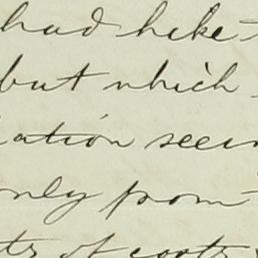 had hike
but which
ation seem
only from
ts of coots